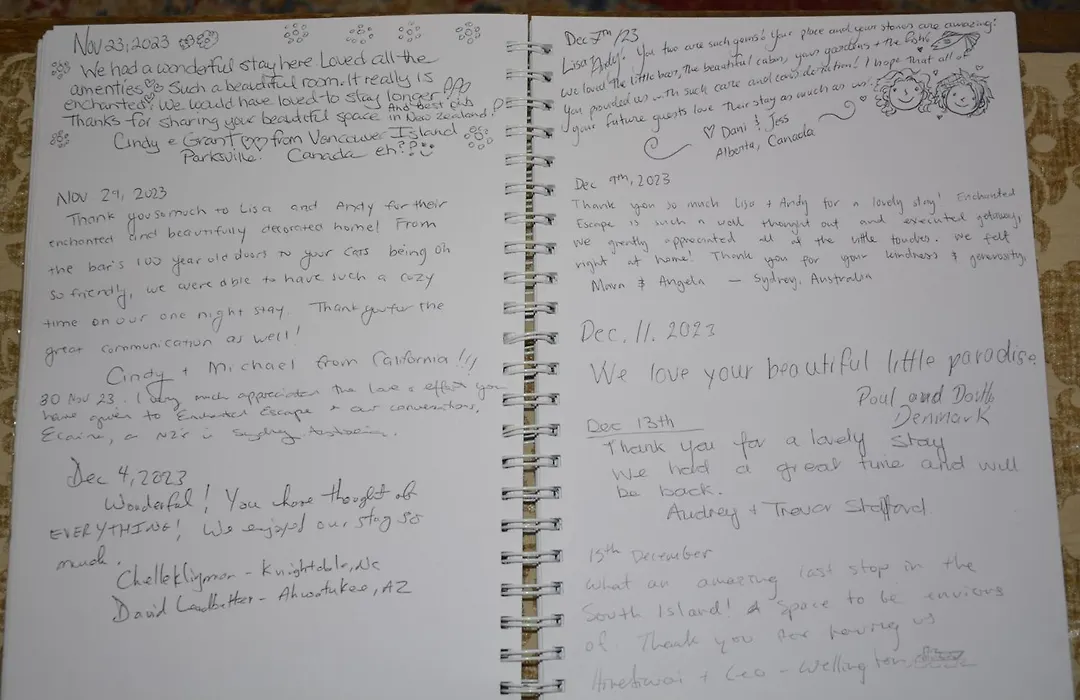 Nov 23, 2023
We had a wonderful stay here Loved all the
amenties Such a beautiful room. It really is
enchanted! We would have loved to stay longer
And best cats
Thanks for sharing your beautiful space in New Zealand!
Cindy & Grant from Vancouver Island
Parksville. Canada eh??
Nov 29, 2023
Thank you so much to Lisa and Andy for their
enchanted and beautifully decorated home! From
the bar's 100 year old doors to your cats being oh
so friendly, we were able to have such a cozy
time on our one night stay. Thank you for the
great communication as well!
Cindy + Michael from California !!!
30 Nov 23. I very much appreciated the love & effort you
have given to Enchanted Escape & our conversations.
Elaine, a NZ'r in Sydney Australia.
Dec 4, 2023
Wonderful! You have thought of
EVERYTHING! We enjoyed our stay so
much.
- Knightdale, NC
David Leadbetter - Ahwatukee, AZ
Dec 7th/23
Lisa & Andy! You two are such gems! Your place and your stories are amazing!
We loved the little bar, the beautiful cabin, your gardens + the fish!
You provided us with such care and consideration! I hope that all of
your future guests love their stay as much as we
Dani & Jess
Alberta, Canada
Dec 9th, 2023
Thank you so much Lisa + Andy for a lovely stay! Enchanted
Escape is such a well thought out and executed getaway,
we greatly appreciated all of the little touches. We felt
right at home! Thank you for your kindness & generosity,
& Angela — Sydney, Australia
Dec. 11. 2023
We love your beautiful little paradise.
Poul and
Denmark
Dec 13th
Thank you for a lovely stay
We had a great time and will
be back.
Audrey + Trevor Stafford.
15th December
What an amazing last stop in the
South Island! A space to be envious
of. Thank you for having us
+ Leo - Wellington